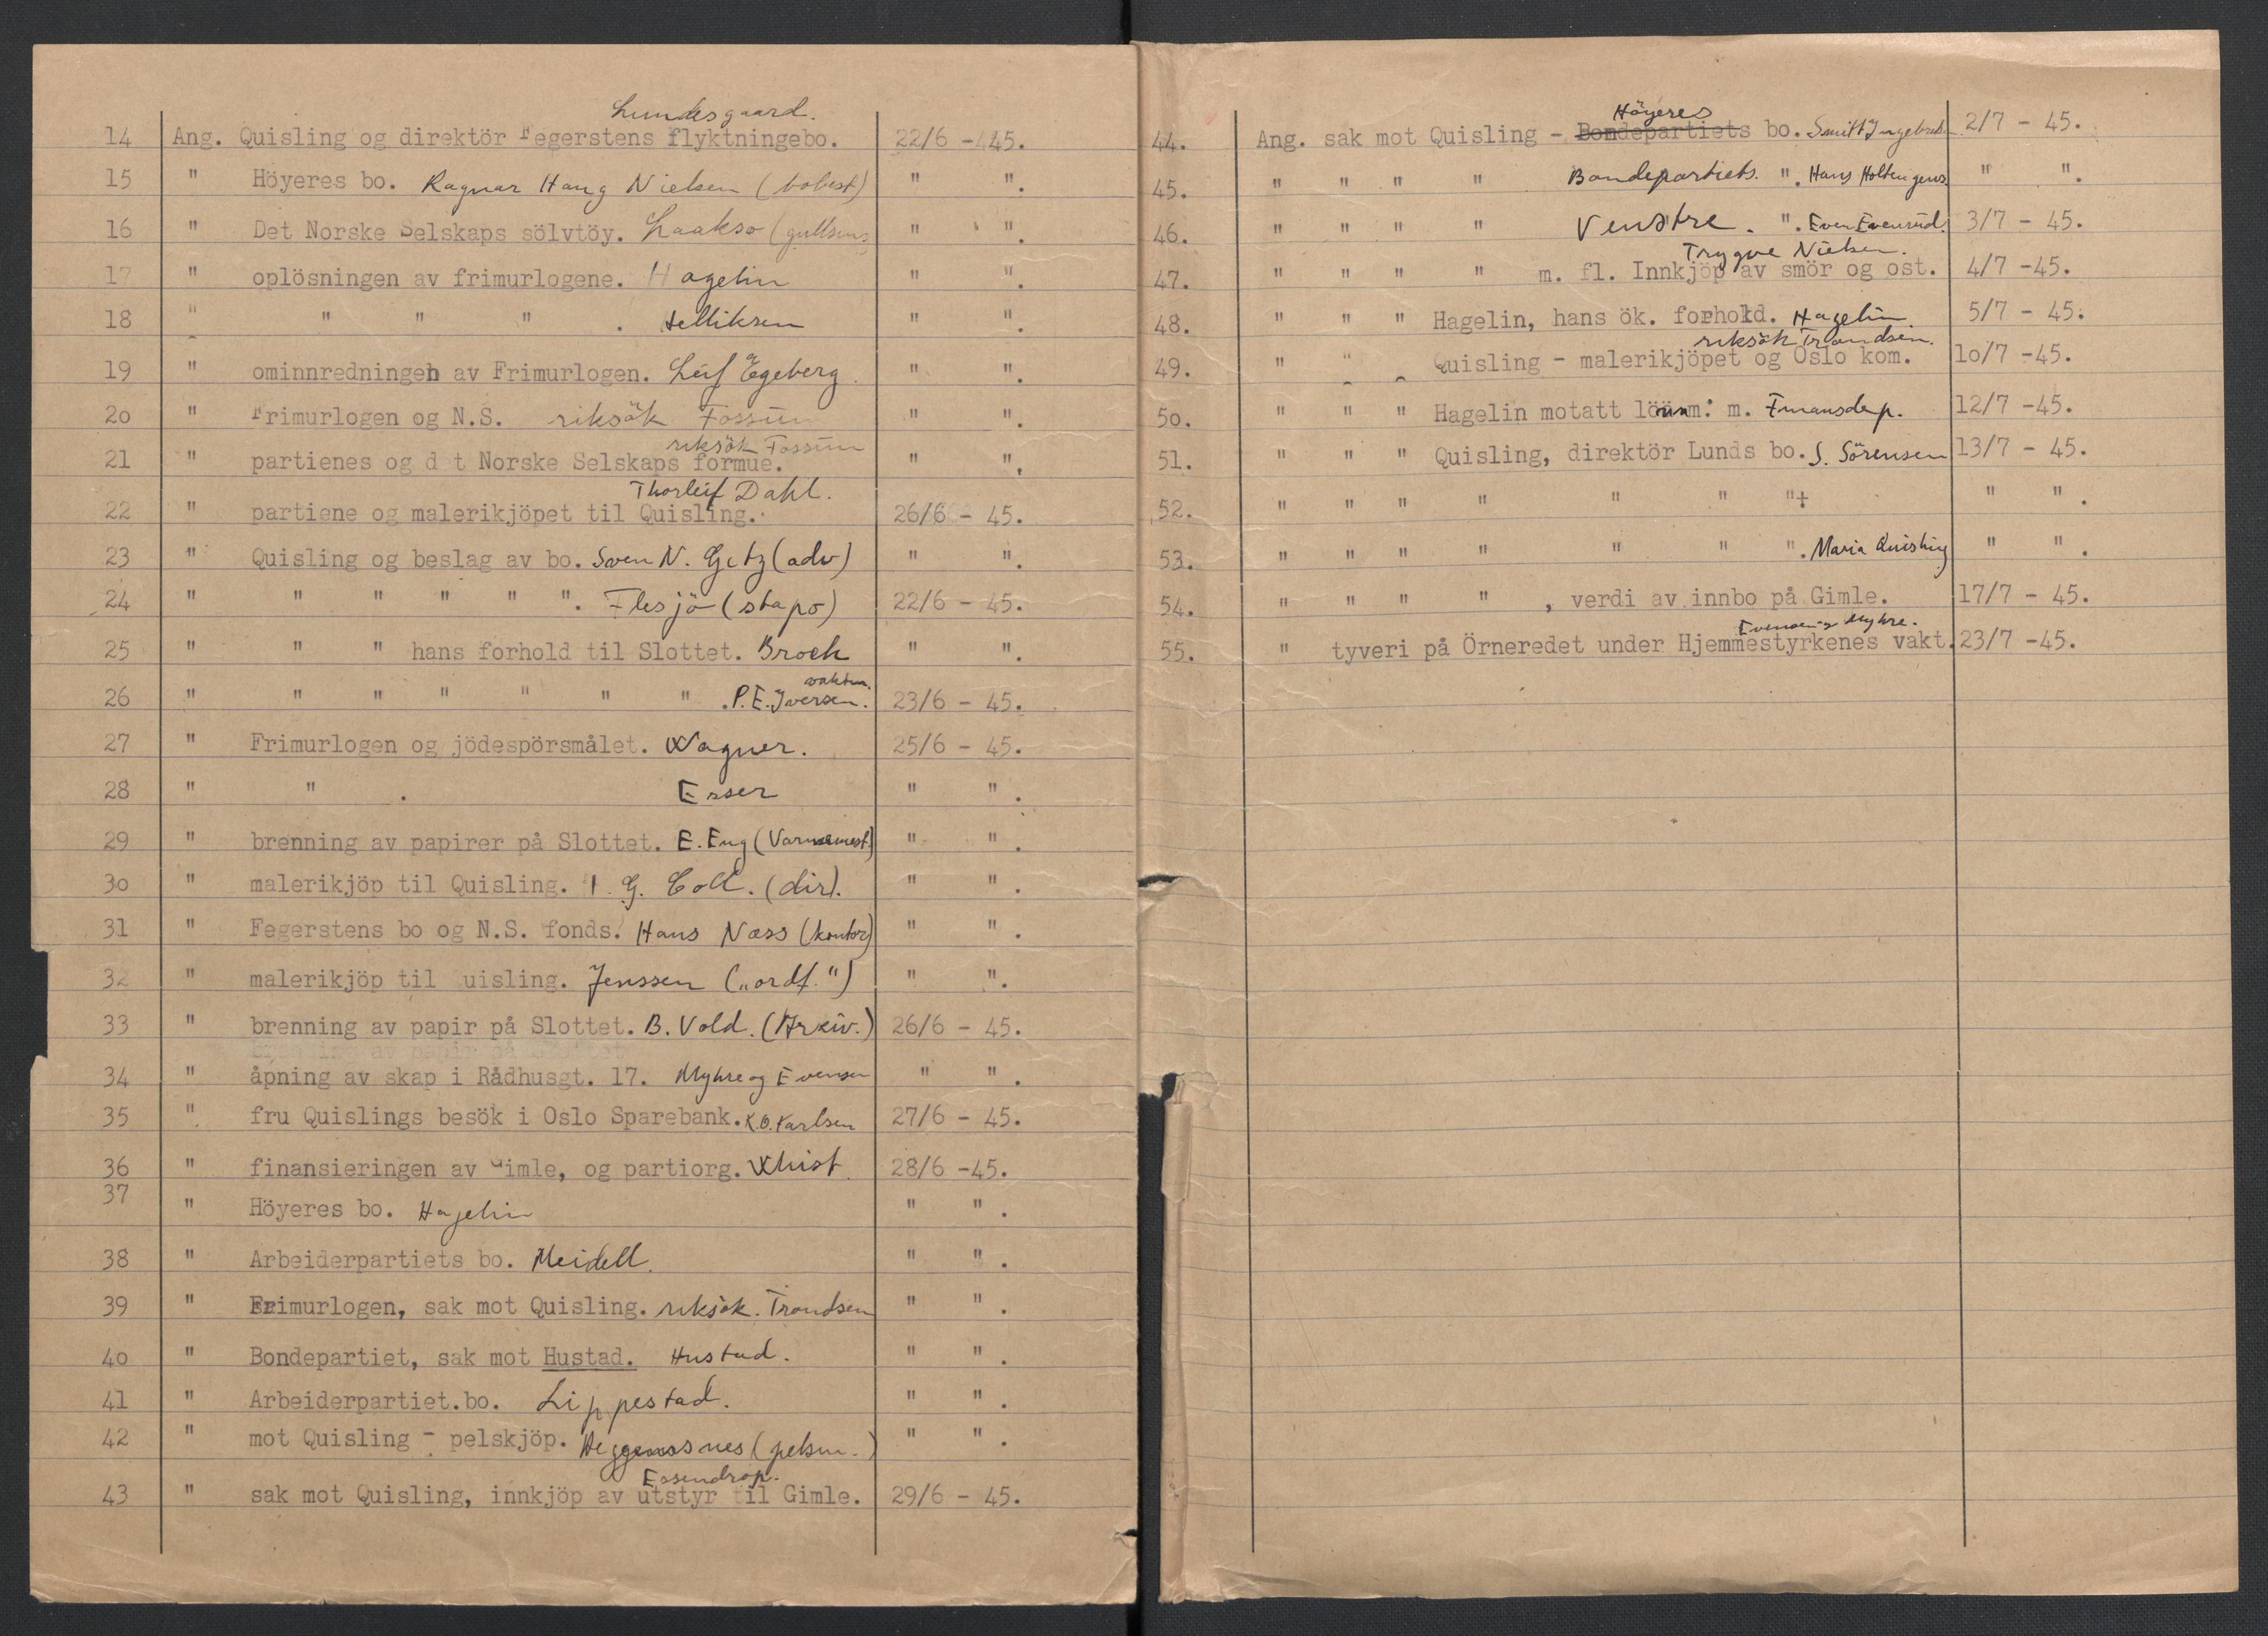 Lundesgaard.
14 Ang. Quisling og direktör Fegerstens flyktningebo. 22/6 - 45.
15 " Höyeres bo. Ragnar Hang Nielsen (bobest) " ".
16 " Det Norske Selskaps sölvtöy. Laakso (gullsm. " ".
17 " oplösningen av frimurlogene. Hagelin " ".
18 " " " " . " ".
19 " ominnredningen av Frimurlogen. Leif Egeberg. " ".
20 " Frimurlogen og N.S. riksök Fossum " ".
riksök Fossum
21 " partienes og d t Norske Selskaps formue. " ".
Thorleif Dahl.
22 " partiene og malerikjöpet til Quisling. 26/6 - 45.
23 " Quisling og beslag av bo. Sven N. Getz (adv) " ".
24 " " " " " ". Flesjö (stapo) 22/6 - 45.
25 " " " hans forhold til Slottet. Broch " ".
vaktm.
26 " " " " " " " . P.E. Iversen. 23/6 - 45.
27 " Frimurlogen og jödespörsmålet. Wagner. 25/6 - 45.
28 " " . Esser " ".
29 " brenning av papirer på Slottet. E. Eng (Varmemest.) " ".
30 " malerikjöp til Quisling. I. G. Coll. (dir). " ".
31 " Fegerstens bo og N.S. fonds. Hans Næss (kontor) " ".
32 " malerikjöp til uisling. Jenssen („ordf.") " ".
33 " brenning av papir på Slottet. B. Vold. (Arkiv.) 26/6 - 45.
34 " åpning av skap i Rådhusgt. 17. Myhre og Evensen " ".
35 " fru Quislings besök i Oslo Sparebank. K.O. Karlsen 27/6 - 45.
36 " finansieringen av Gimle, og partiorg. Whist. 28/6 -45.
37 " Höyeres bo. Hagelin " ".
38 " Arbeiderpartiets bo. Meidell. " ".
39 " Frimurlogen, sak mot Quisling. riksök. Trondsen " ".
40 " Bondepartiet, sak mot Hustad. Hustad. " ".
41 " Arbeiderpartiet.bo. Lippestad. " ".
42 " mot Quisling - pelskjöp. (pelsm.) " ".
Essendrop.
43 " sak mot Quisling, innkjöp av utstyr til Gimle. 29/6 - 45.
Höyeres
44. Ang. sak mot Quisling - Bondepartiets bo. Smitt Ingebretsen 2/7 - 45.
45. " " " " Bondepartiets. ". Hans Holtengens. " ".
46. " " " " Venstre. ". Even Evensrud. 3/7 - 45.
Trygve Nielsen.
47. " " " " m. fl. Innkjöp av smör og ost. 4/7 -45.
48. " " " Hagelin, hans ök. forhold. Hagelin. 5/7 - 45.
riksök Trondsen.
49. " " " Quisling - malerikjöpet og Oslo kom. 10/7 -45.
50. " " " Hagelin motatt lönnm: m. Finansdep. 12/7 -45.
51. " " " Quisling, direktör Lunds bo. S. Sörensen 13/7 - 45.
52. " " " " " " "+ " ".
53. " " " " " " ". Maria Quisling " ".
54. " " " " , verdi av innbo på Gimle. 17/7 - 45.
Evensen og Myhre.
55. " tyveri på Örneredet under Hjemmestyrkenes vakt. 23/7 -45.